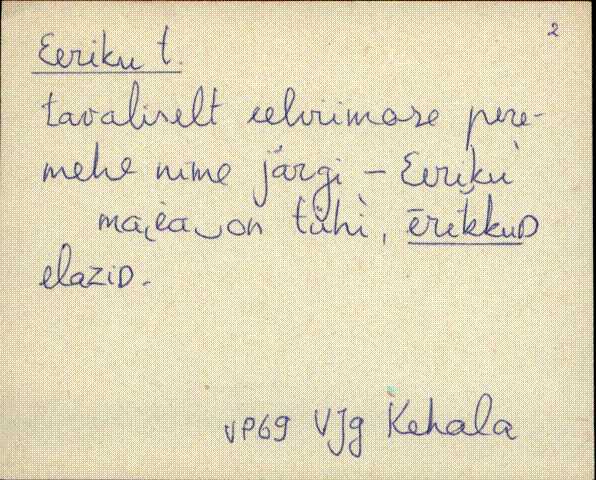 2
Eeriku t.
tavaliselt eelviimase pere-
mehe nime järgi – Eeriku
maja on tühi, ērikkuD
elaziD.
VP69 VJg Kehala